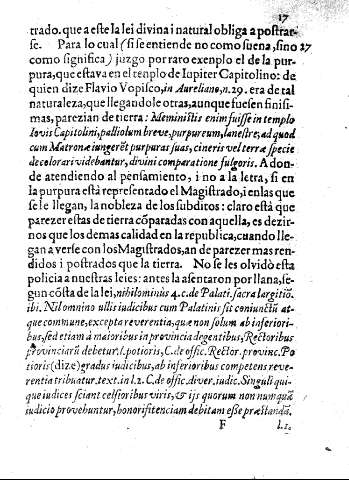 17
trado. que a este la lei divina i natural obliga a postrar-
se. Para lo cual (si se entiende no como suena, sino 27
como significa) juzgo por raro exenplo el de la pur-
pura, que estava en el tenplo de Iupiter Capitolino: de
quien dize Flavio Vopisco, in Aureliano, n. 29. era de tal
naturaleza, que llegandole otras, aunque fuesen finisi-
mas, parezian de tierra: Meministis enim fuisse in templo
Iovis Capitolini, palliolum breve, purpureum, lanestre; ad quod
cum Matronæ iungerēt purpuras suas, cineris vel terræ specie
decolorari videbantur, divini comparatione fulgoris. A don-
de atendiendo al pensamiento, i no a la letra, si en
la purpura està representado el Magistrado, i en las que
se le llegan, la nobleza de los subditos: claro està que
parezer estas de tierra cōparadas con aquella, es dezir-
nos que los demas calidad en la republica, cuando lle-
gan a verse con los Magistrados, an de parezer mas ren-
didos i postrados que la tierra. No se les olvidò esta
policia a nuestras leies: antes la asentaron por llana, se-
gun cōsta de la lei, nihilominùs 4. c. de Palati. sacra largitiō.
ibi. Nilomnino ullis iudicibus cum Palatinis sit coniunctū at-
que commune, excepta reverentia, quæ non solum ab inferiori-
bus, sed etiam à maioribus in provincia degentibus, Rectoribus
provinciarū debetur. l. potioris, C. de offic. Rector. provinc. Po
tioris (dize) gradus iudicibus, ab inferioribus competens reve-
rentia tribuatur. text. in l. 2. C. de offic. diver. iudic. Singuli qui-
que iudices sciant celsioribus viris, & ijs quorum non numquā
iudicio provehuntur, honorificentiam debitam esse præstandā.
F l. 1.